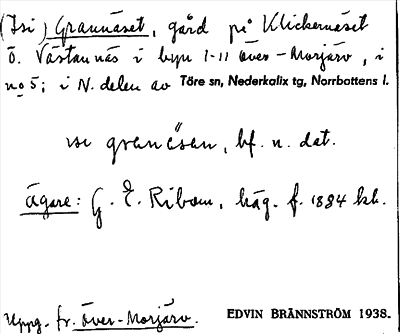 (Isi) Grannäset, gård på Klickernäset
ö. Västannäs i byn 1-11 Över-Morjärv, i
no 5; i N. delen av Töre sn, Nederkalix tg, Norrbottens l.
granäsan, bf. n. dat.
ägare: G. E. Ribom, häg. f. 1884 kb.
Uppg. fr. Över-Morjärv. EDVIN BRÄNNSTRÖM 1938.